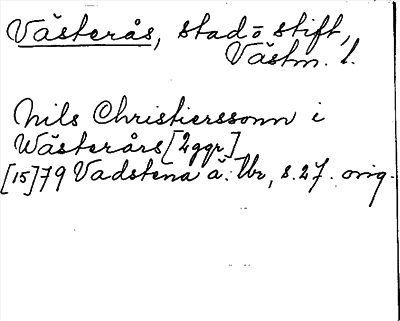 Västerås, stad o stift,
Västm. l.
Nils Christierssonn i
Wästerårs [2 ggr]
[15]79 Vadstena ä. tbr, s. 27. orig.